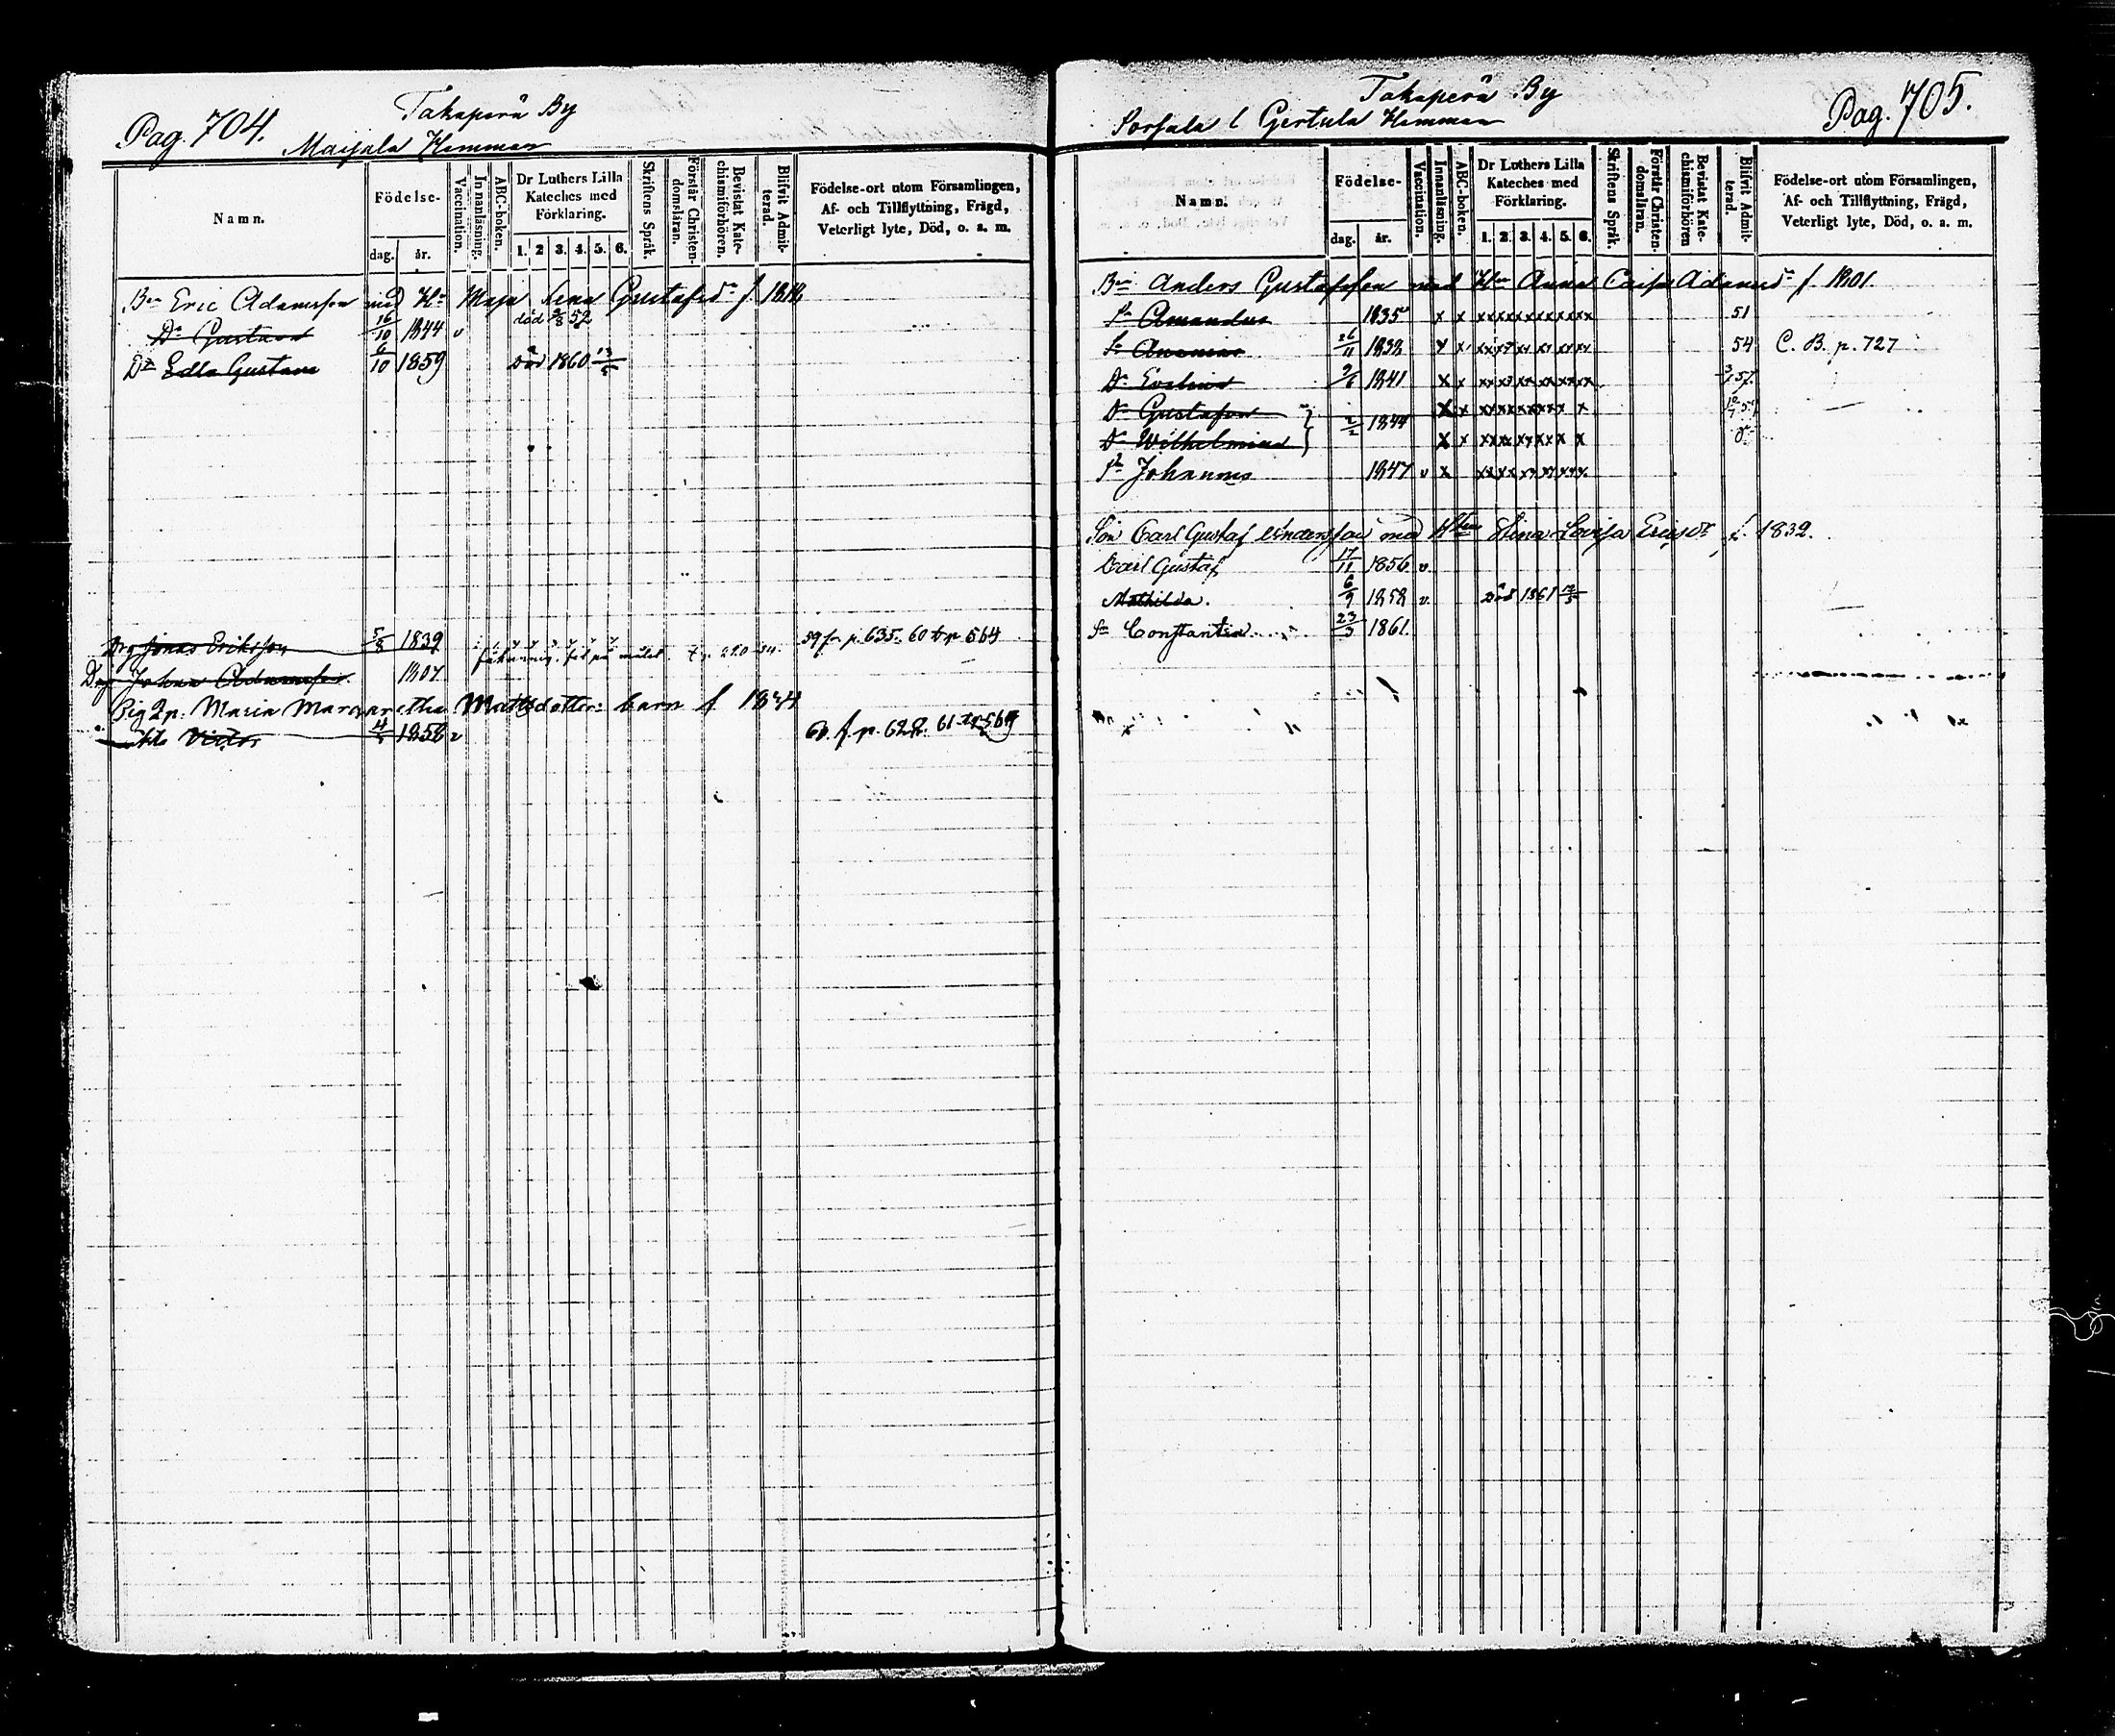 Pag. 704.
Takaperä By
Maijala Hemman
Namn.
Födelse-
dag.
år.
Vaccination.
Innanläsning.
ABC-boken.
Dr Luthers Lilla
Kateches med
Förklaring.
1. 2 3. 4. 5. 6.
Skriftens Språk.
Förstår Christen-
domsläran.
Bevistat Kate-
chismiförhören.
Blifvit Admit-
terad.
Födelse-ort utom Församlingen,
Af- och Tillflyttning, Frägd,
Veterligt lyte, Död, o. a. m.
Bn Eric Adamsson med Hn Maja Lena Gustafsdr f. 1818
Dr Gustava 16/10 1844 v död 2/8 52
Dr Edla Gustava 6/10 1859 Död 1860 13/5
Drg Jonas Eriksson 5/8 1839 59 fr. p. 635. 60 t. p 564
Drg Johan Adamsson 1807
Pig. Maria Margaretha Mattsdotters barn f. 1834
Victor 4/5 1858 v 60. f. p. 628. 61 t. p 569
Pag. 705.
Takaperä By
Sorfala l Gertula Hemman
Namn.
Födelse-
dag.
år.
Vaccination.
Innanläsning.
ABC-boken.
Dr Luthers Lilla
Kateches med
Förklaring.
1. 2. 3. 4. 5. 6.
Skriftens Språk.
Förstår Christen-
domsläran.
Bevistat Kate-
chismiförhören
Blifvit Admit-
terad.
Födelse-ort utom Församlingen,
Af- och Tillflyttning, Frägd,
Veterligt lyte, Död, o. a. m.
Bn Anders Gustafsson med Hn Anna Caisa Adamsdr f. 1801.
Sn Amandus 1835 x x xxxxxxxxxxxx 51
Sn Ananias 26/11 1832 x x xx xx xx xx xx xx 54 C. B. p. 727
Dr Evelina 9/6 1841 x x xx xx xx xx xx xx 57.
Dr Gustafva x x xx xx xx xx x x
2/2 1844
Dr Wilhelmina x x xx xx xx xx x x
Sn Johannes 1847 v x xx xx xx xx xx xx
Son Carl Gustaf Andersson med Hn Stina Lovisa Ericsdr f. 1832.
Carl Gustaf 17/11 1856 v.
Mathilda. 6/9 1858 v. Död 1861
Sn Constantin 23/3 1861.